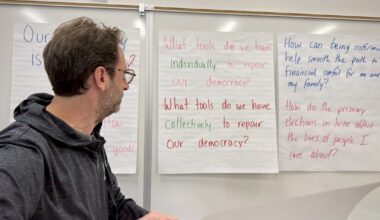 Our
my
is
How
good?
What tools do we have
individually to repair
our democracy?
What tools do we have
collectively to repair
our democracy?
How can being informed
help smooth the path to
financial comfort for me and
my family?
How do the primary
elections in June affect
the lives of people I
care about?